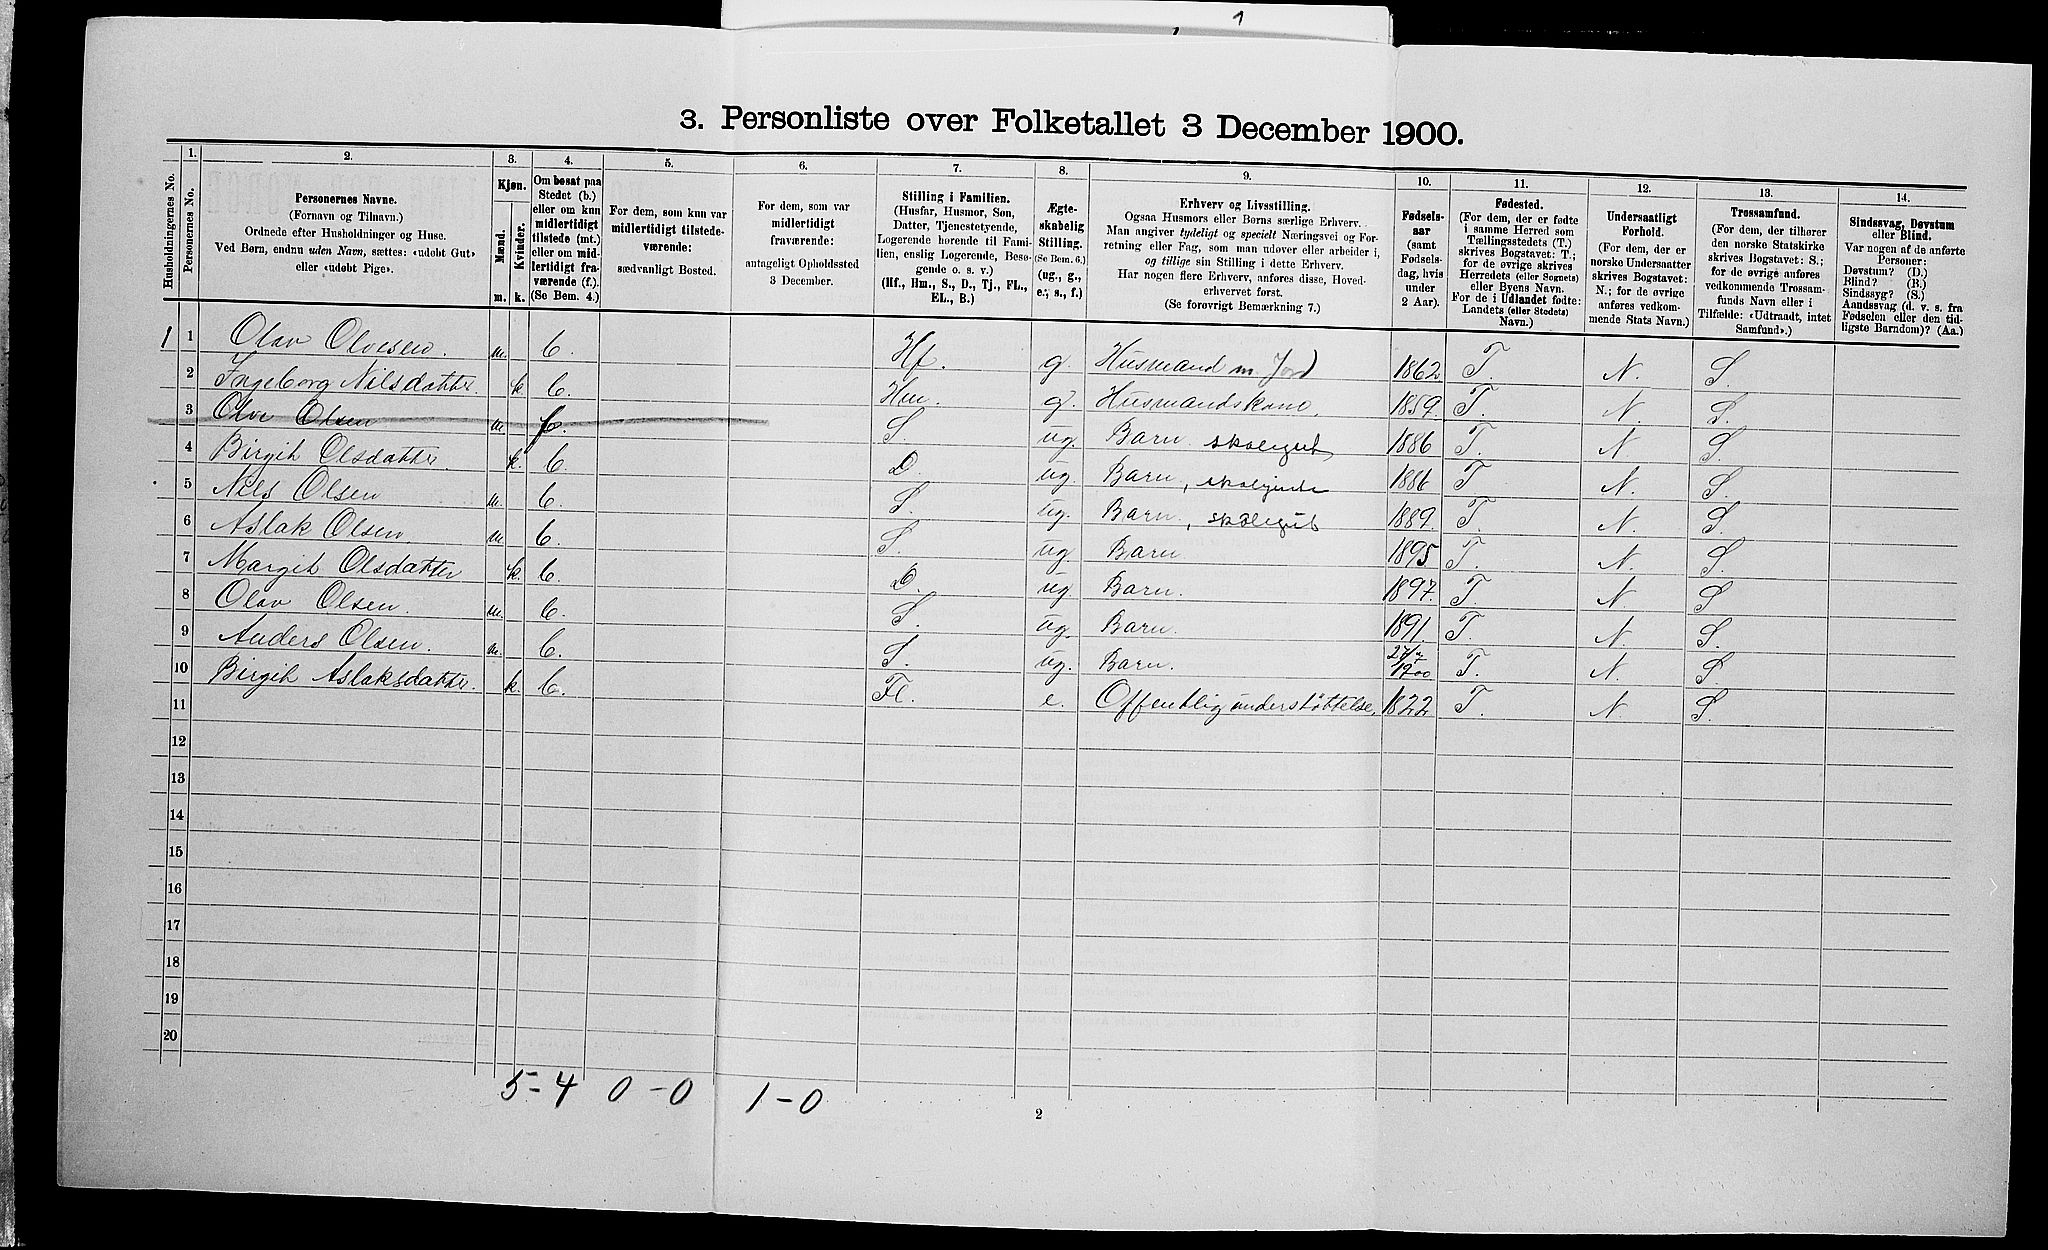 1
3. Personliste over Folketallet 3 December 1900.
Husholdningernes No.
1.
Personernes No.
2.
Personernes Navne.
(Fornavn og Tilnavn.)
Ordnede efter Husholdninger og Huse.
Ved Børn, endnu uden Navn, sættes: «udøbt Gut»
eller «udøbt Pige».
3.
Kjøn.
Mænd.
Kvinder.
m. k.
4.
Om bosat paa
Stedet (b.)
eller om kun
midlertidigt
tilstede (mt.)
eller om mid-
lertidigt fra-
værende (f.).
(Se Bem. 4.)
5.
For dem, som kun var
midlertidigt tilstede-
værende:
sædvanligt Bosted.
6.
For dem, som var
midlertidigt
fraværende:
antageligt Opholdssted
3 December.
7.
Stilling i Familien.
(Husfar, Husmor, Søn,
Datter, Tjenestetyende,
Logerende hørende til Fami-
lien, enslig Logerende, Besø-
gende o. s. v.)
(Hf., Hm., S., D., Tj., FL.,
EL., B.)
8.
Ægte-
skabelig
Stilling.
(Se Bem. 6.)
(ug., g.,
e., s., f.)
9.
Erhverv og Livsstilling.
Ogsaa Husmors eller Børns særlige Erhverv.
Man angiver tydeligt og specielt Næringsvei og For-
retning eller Fag, som man udøver eller arbeider i,
og tillige sin Stilling i dette Erhverv.
Har nogen flere Erhverv, anføres disse, Hoved-
erhvervet først.
(Se forøvrigt Bemærkning 7.)
10.
Fødsels-
aar
(samt
Fødsels-
dag, hvis
under
2 Aar).
11.
Fødested.
(For dem, der er fødte
i samme Herred som
Tællingsstedets (T.)
skrives Bogstavet: T.;
for de øvrige skrives
Herredets (eller Sognets)
eller Byens Navn.
For de i Udlandet fødte:
Landets (eller Stedets)
Navn.)
12.
Undersaatligt
Forhold.
(For dem, der er
norske Undersaatter
skrives Bogstavet:
N.; for de øvrige
anføres vedkom-
mende Stats Navn.)
13.
Trossamfund.
(For dem, der tilhører
den norske Statskirke
skrives Bogstavet: S.;
for de øvrige anføres
vedkommende Trossam-
funds Navn eller i
Tilfælde: «Udtraadt, intet
Samfund».)
14.
Sindssvag, Døvstum
eller Blind.
Var nogen af de anførte
Personer:
Døvstum? (D.)
Blind? (B.)
Sindssyg? (S.)
Aandssvag (d. v. s. fra
Fødselen eller den tid-
ligste Barndom)? (Aa.)
1 1 Olav Olvesen. m. b. Hf. g. Husmand m Jord 1862 T. N. S.
2 Ingeborg Nilsdatter. k. b. Hm. g. Husmandskone. 1859. T. N. S.
3 Olve Olsen m f. S. ug. Barn. skolegut 1886 T. N. S.
4 Birgit Olsdatter. k. b. D. ug Barn, skolejente 1886 T N. S.
5 Nils Olsen m. b. S. ug. Barn, skolegut 1889. T. N. S.
6 Aslak Olsen. m. b. S. ug Barn. 1895 T. N. S.
7 Margit Olsdatter k. b. D. ug Barn. 1897. T. N. S
8 Olav Olsen. m. b. S. ug. Barn. 1891. T. N. S.
9 Anders Olsen. m. b. S. ug. Barn. 1900 T. N. S
10 Birgit Aslaksdatter. k. b. Fl. e. Offentlig understøttelse. 1822 T. N. S.
11
12
13
14
15
16
17
18
19
20
5-4 0-0 1-0
2